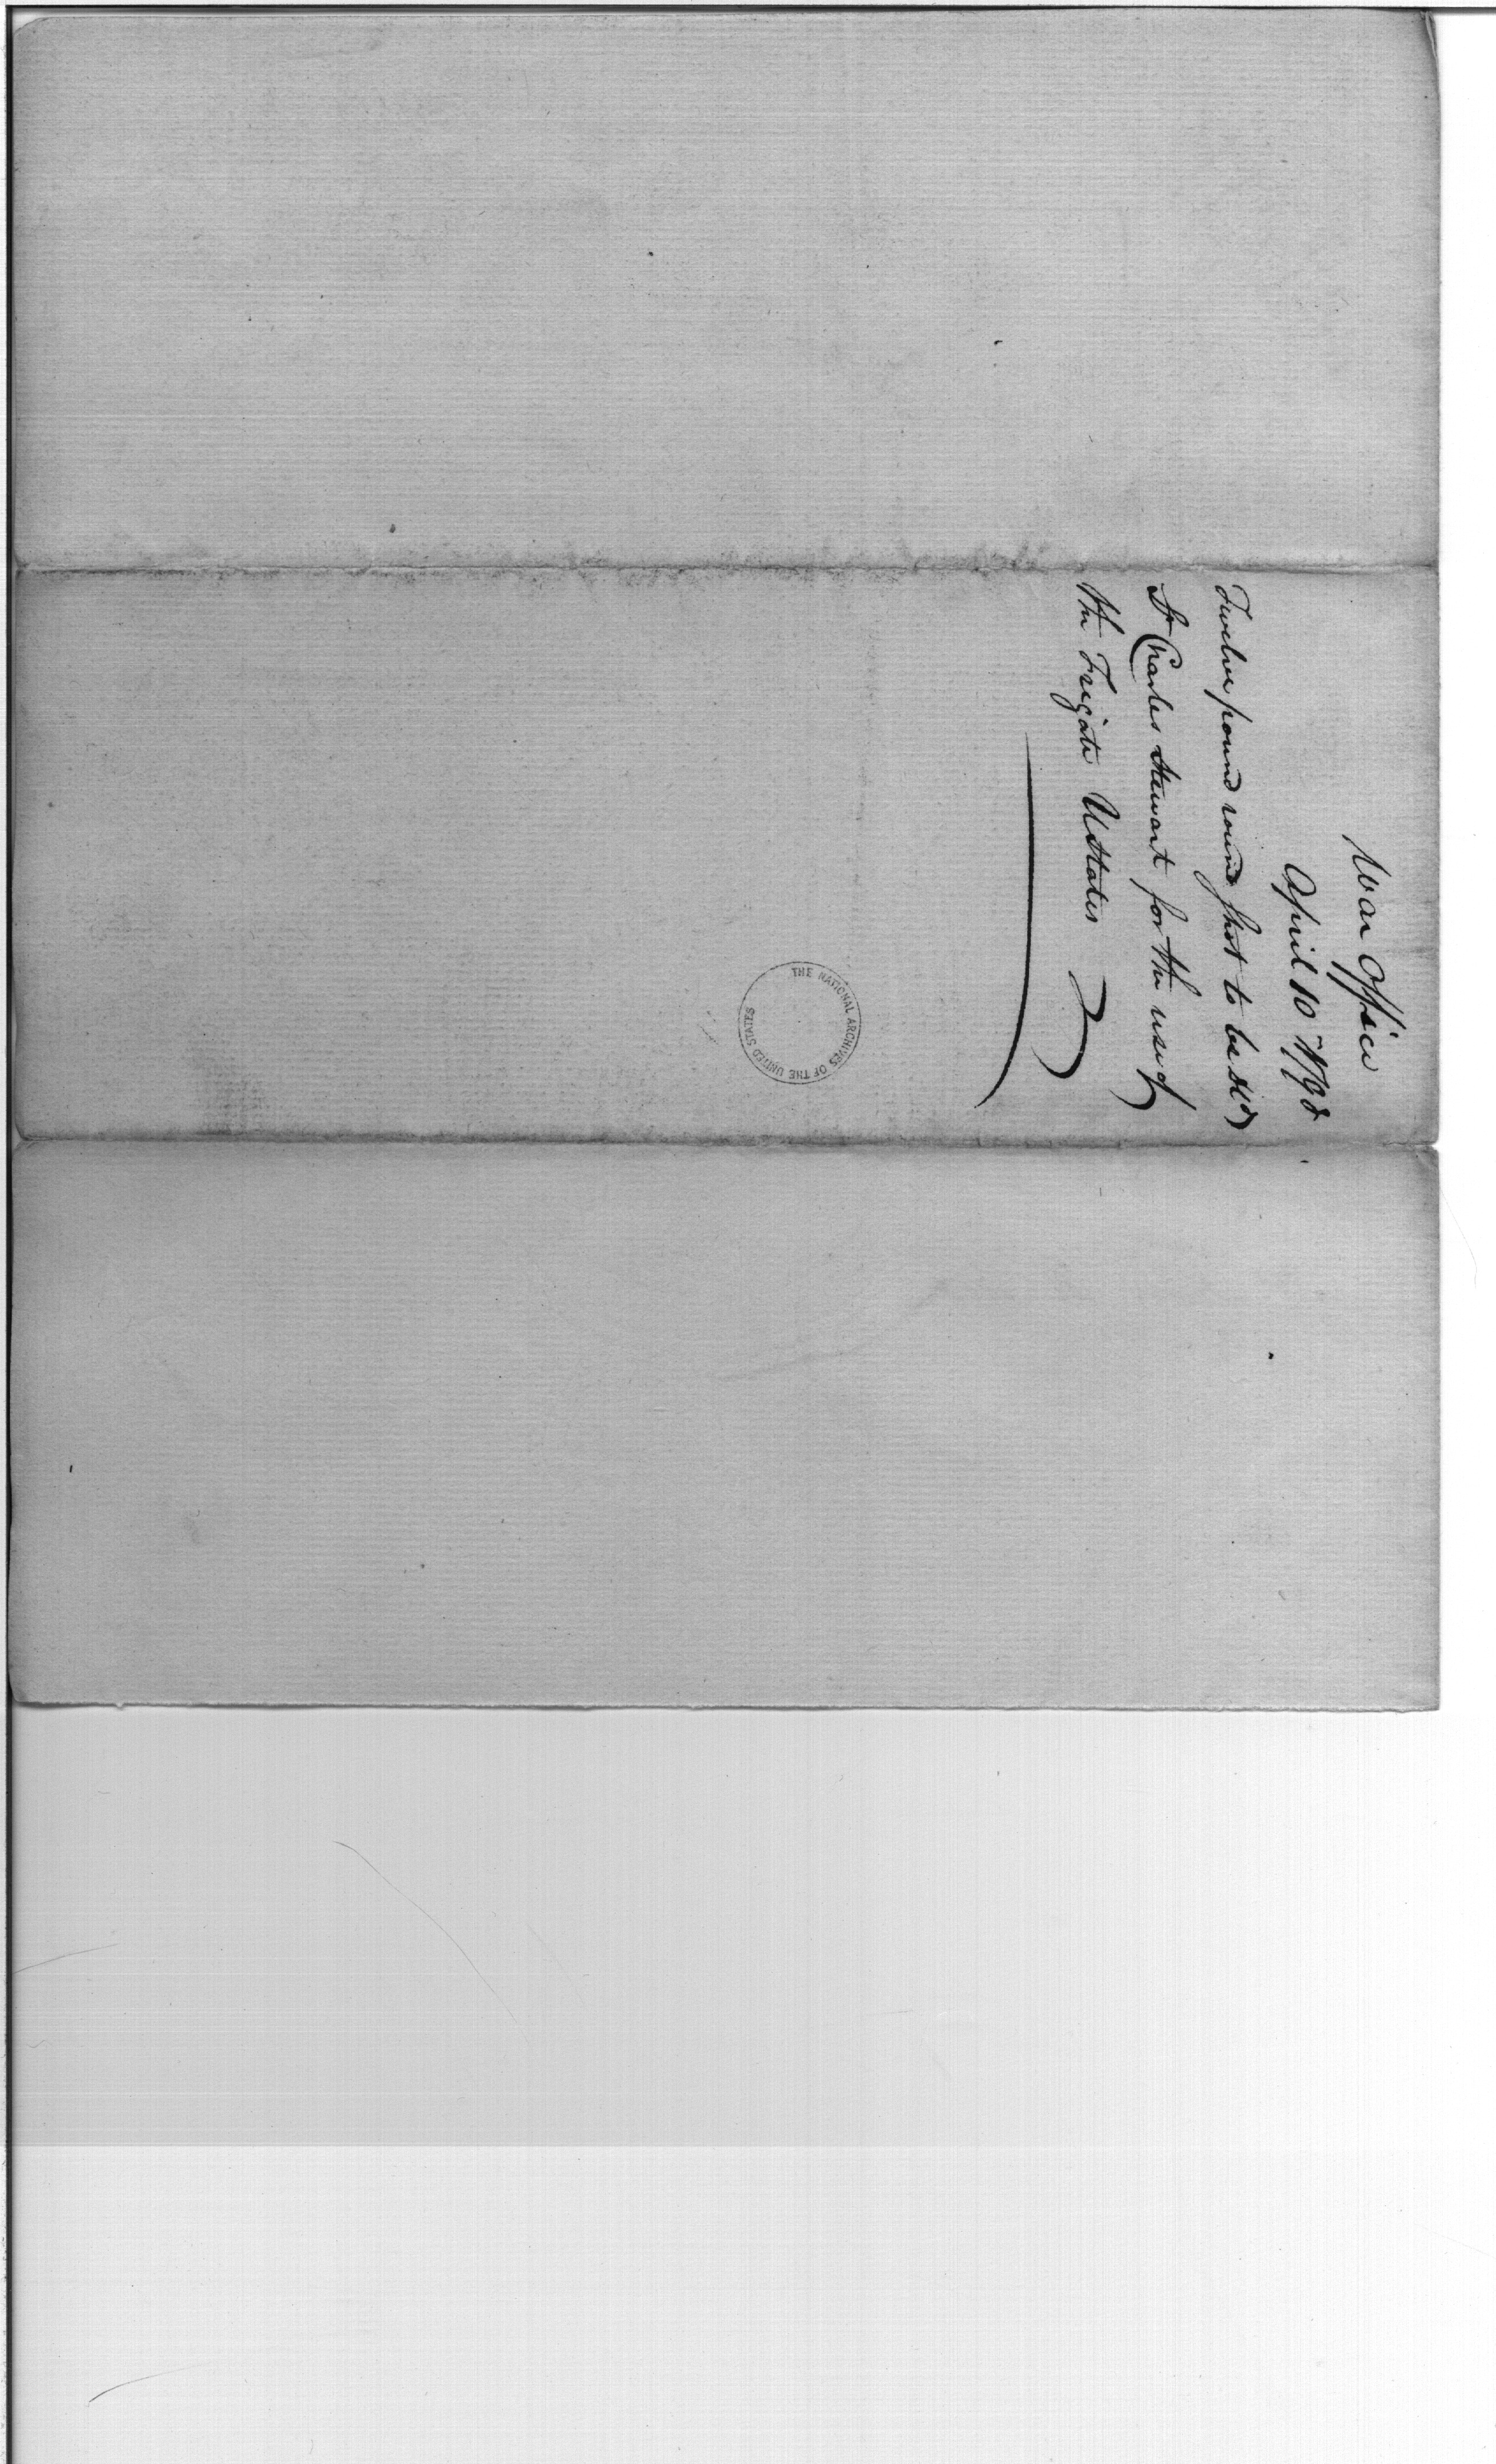 War Office
April 10th 1798
Twelve pound round shot to be dld
Lt Charles Stewart for the use of
the Frigate UStates
THE NATIONAL ARCHIVES OF THE UNITED STATES